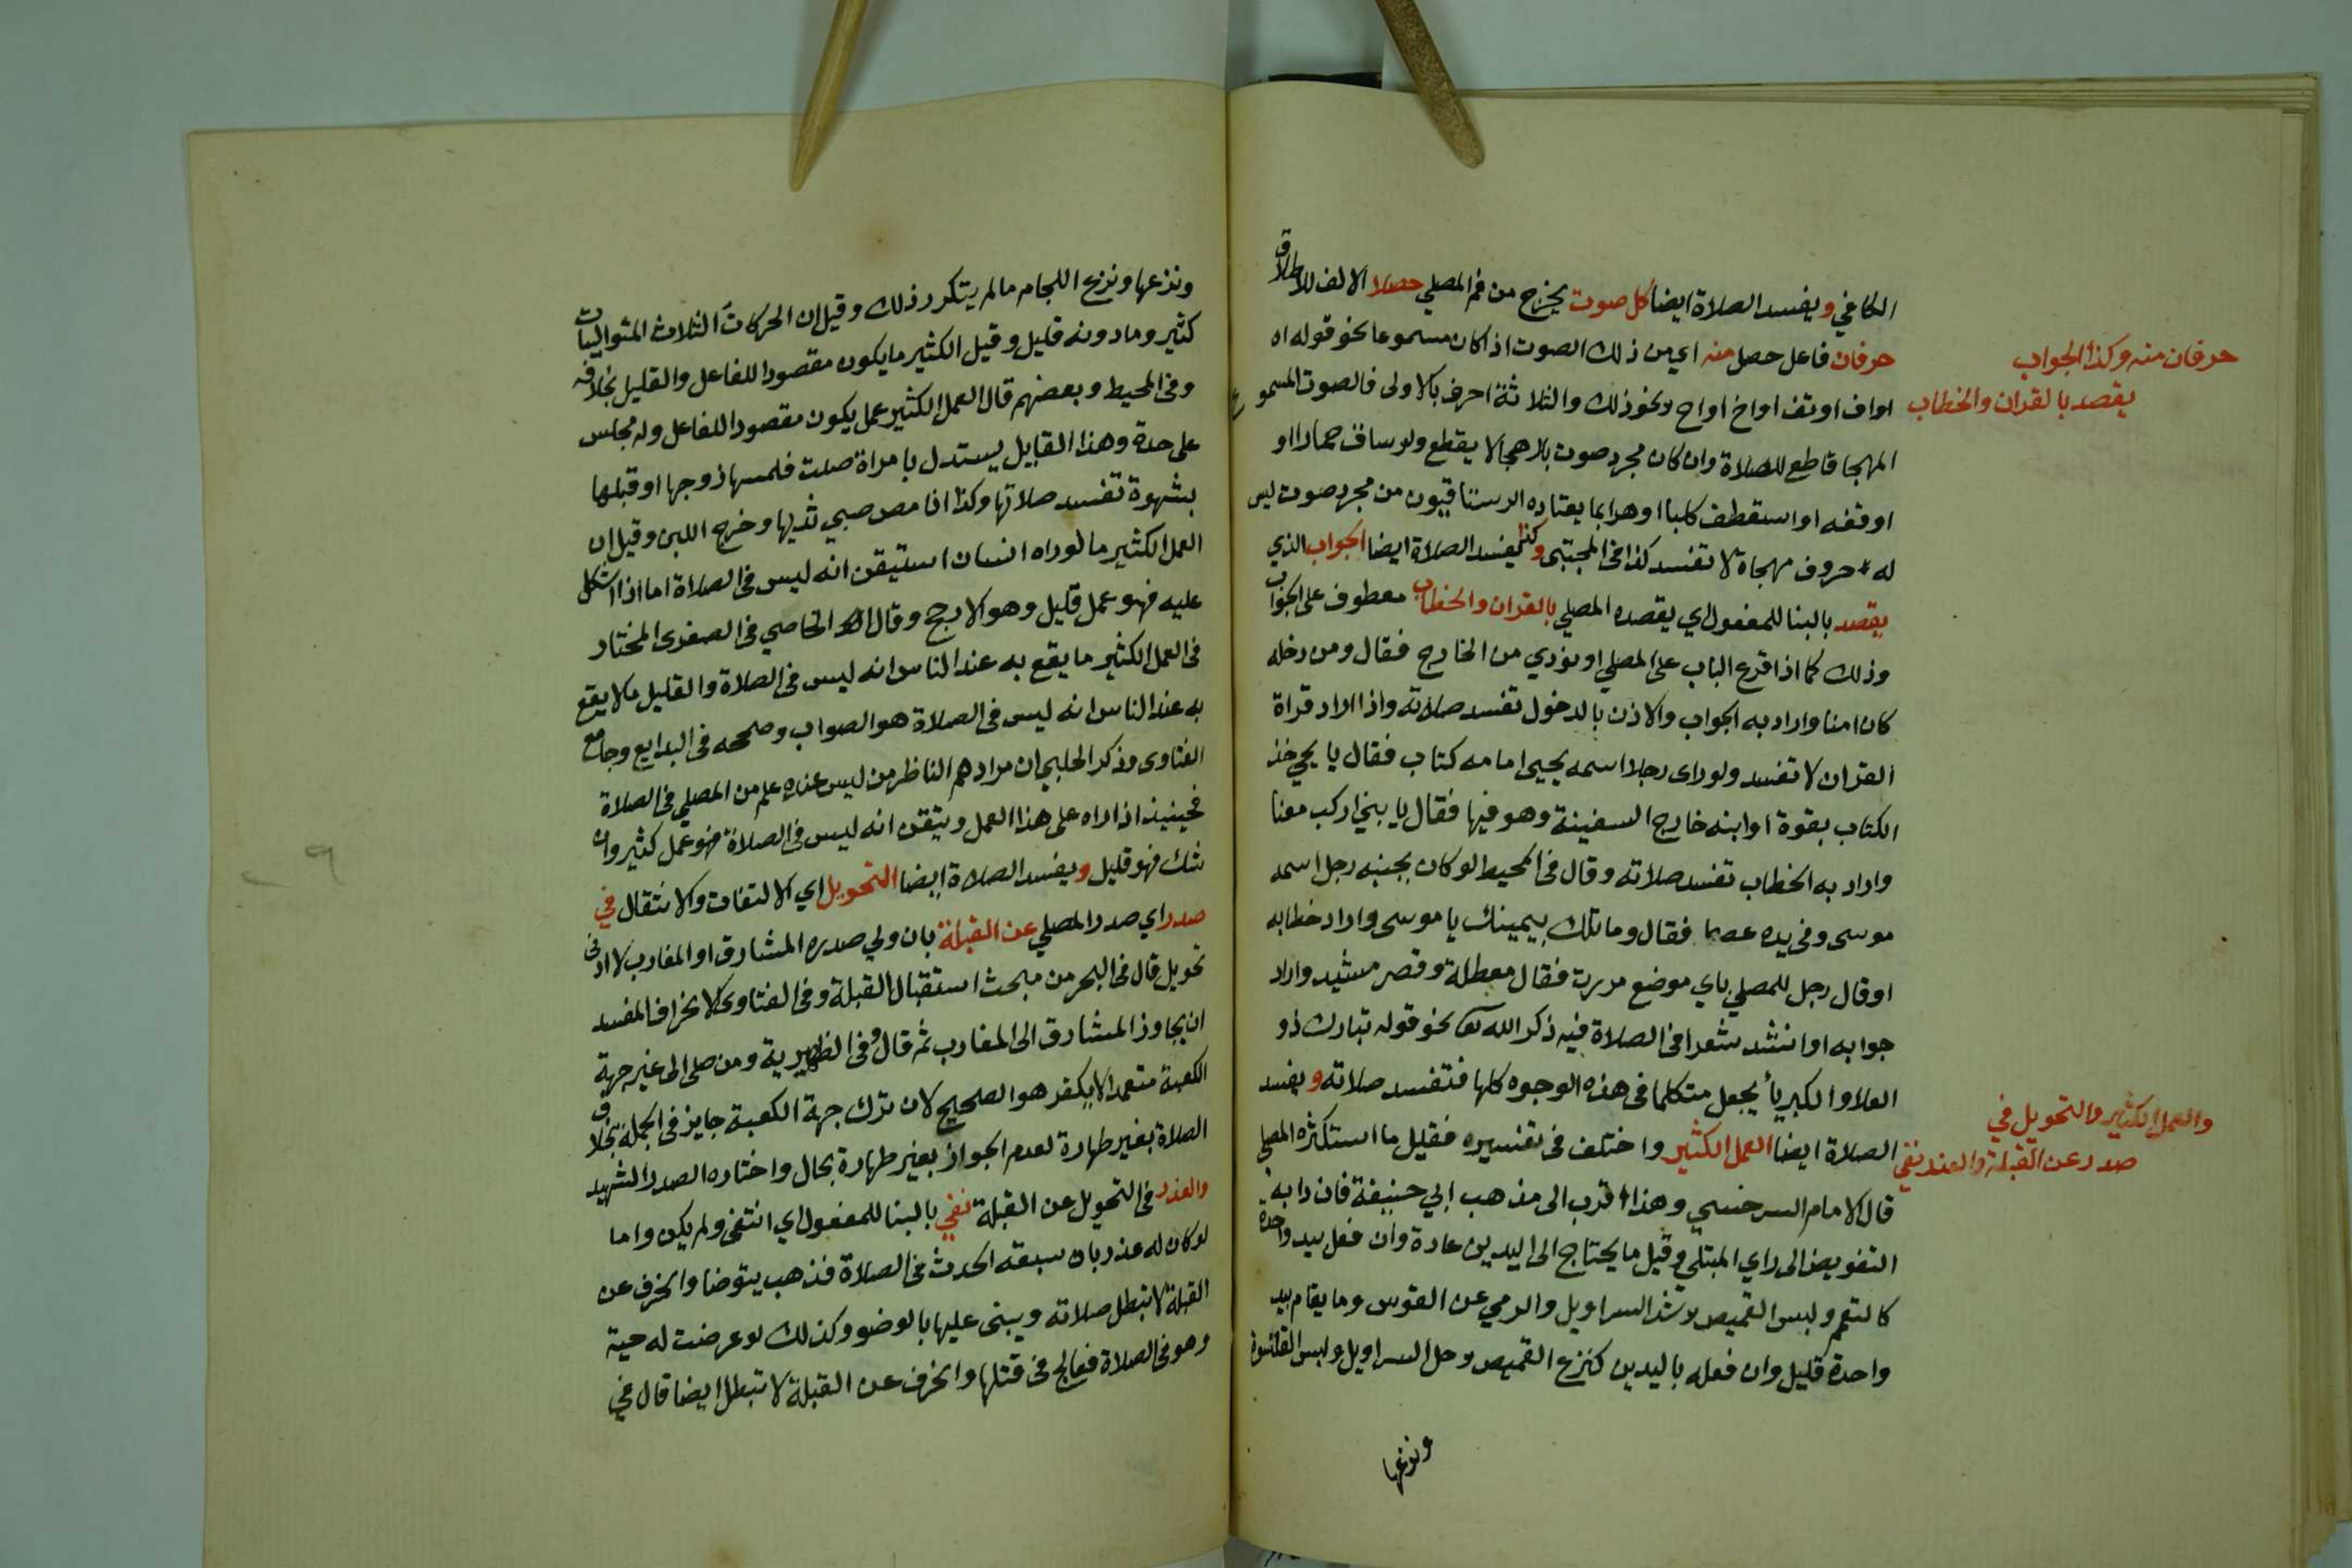 الكافي ويفسد الصلاة ايضا كل صوت يخرج من فم المصلي حصلا الالف للاطلاق
حرفان فاعل حصل منه اي من ذلك الصوت اذا كان مسموعا نحو قوله اه
او اف او تف او اخ او اح ونحو ذلك والثلاثة احرف بالاولى فالصوت المسموع
المهجا قاطع للصلاة وان كان مجرد صوت بلا هجا لا يقطع ولو ساق حمارا او
اوقفه او استقطف كلبا او هرا بما يعتاده الرستاقيون من مجرد صوت ليس
له حروف مهجاة لا تفسد كذا في المجتبى وكذا يفسد الصلاة ايضا الجواب الذي
يقصد بالبنا للمفعول اي يقصده المصلي بالقران والخطاب معطوف على الجواب
وذلك كما اذا قرع الباب على المصلي او نودي من الخارج فقال ومن دخله
كان امنا واراد به الجواب والاذن بالدخول تفسد صلاته واذا اراد قراة
القران لا تفسد ولو راى رجلا اسمه يحيى امامه كتاب فقال يا يحيى خذ
الكتاب بقوة او ابنه خارج السفينة وهو فيها فقال يا بني اركب معنا
واراد به الخطاب تفسد صلاته وقال في المحيط لو كان بجنبه رجل اسمه
موسى وفي يده عصا فقال وما تلك بيمينك يا موسى واراد خطابه
او قال رجل للمصلي باي موضع مررت فقال معطلة وقصر مشيد واراد
جوابه او انشد شعرا في الصلاة فيه ذكر الله تعالى نحو قوله تبارك ذو
العلا والكبرياء يجعل متكلما في هذه الوجوه كلها فتفسد صلاته ويفسد
الصلاة ايضا العمل الكثير واختلف في تفسيره فقيل ما استكثره المصلي
قال الامام السرخسي وهذا اقرب الى مذهب ابي حنيفة فان دابه
التفويض الى راي المبتلى وقيل ما يحتاج الى اليدين عادة وان فعل بيد واحدة
كالتعمم ولبس القميص وشد السراويل والرمي عن القوس وما يقام بيد
واحدة قليل وان فعله باليدين كنزع القميص وحل السراويل ولبس القلنسوة
ونزعها
حرفان منه وكذا الجواب
يقصد بالقران والخطاب
والعمل الكثير والتحويل في
صدر عن القبلة والعذر نفي
ونزعها ونزع اللجام ما لم يتكرر ذلك وقيل ان الحركات الثلاث المتواليات
كثير وما دونه قليل وقيل الكثير ما يكون مقصودا للفاعل والقليل بخلافه
وفي المحيط وبعضهم قال العمل الكثير عمل يكون مقصودا للفاعل وله مجلس
على حدة وهذا القايل يستدل بامراة صلت فلمسها زوجها او قبلها
بشهوة تفسد صلاتها وكذا اذا مص صبي ثديها وخرج اللبن وقيل ان
العمل الكثير ما لو راه انسان استيقن انه ليس في الصلاة اما اذا اشكل
عليه فهو عمل قليل وهو الارجح وقال الخاصي في الصغرى المختار
في العمل الكثير ما يقع به عند الناس انه ليس في الصلاة والقليل ما لا يقع
به عند الناس انه ليس في الصلاة هو الصواب وصححه في البدايع وجامع
الفتاوى وذكر الحلبي ان مرادهم الناظر من ليس عنده علم من المصلي في الصلاة
فحينيذ اذا راه على هذا العمل وتيقن انه ليس في الصلاة فهو عمل كثير وان
شك فهو قليل ويفسد الصلاة ايضا التحويل اي الالتفات والانتقال في
صدر اي صدر المصلي عن القبلة بان ولي صدره المشارق او المغارب لا ادنى
تحويل قال في البحر من مبحث استقبال القبلة وفي الفتاوى الانحراف المفسد
ان يجاوز المشارق الى المغارب ثم قال وفي الظهيرية ومن صلى الى غير جهة
الكعبة متعمدا لا يكفر هو الصحيح لان ترك جهة الكعبة جايز في الجملة بخلاف
الصلاة بغير طهارة لعدم الجواز بغير طهارة بحال واختاره الصدر الشهيد
والعذر في التحويل عن القبلة نفي بالبنا للمفعول اي انتفى ولم يكن واما
لو كان له عذر بان سبقه الحدث في الصلاة فذهب يتوضا وانحرف عن
القبلة لا تبطل صلاته ويبنى عليها بالوضو وكذلك لو عرضت له حية
وهو في الصلاة فعالج في قتلها وانحرف عن القبلة لا تبطل ايضا قال في